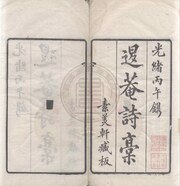 光緒丙午鋟
退菴詩稾
素美軒藏板